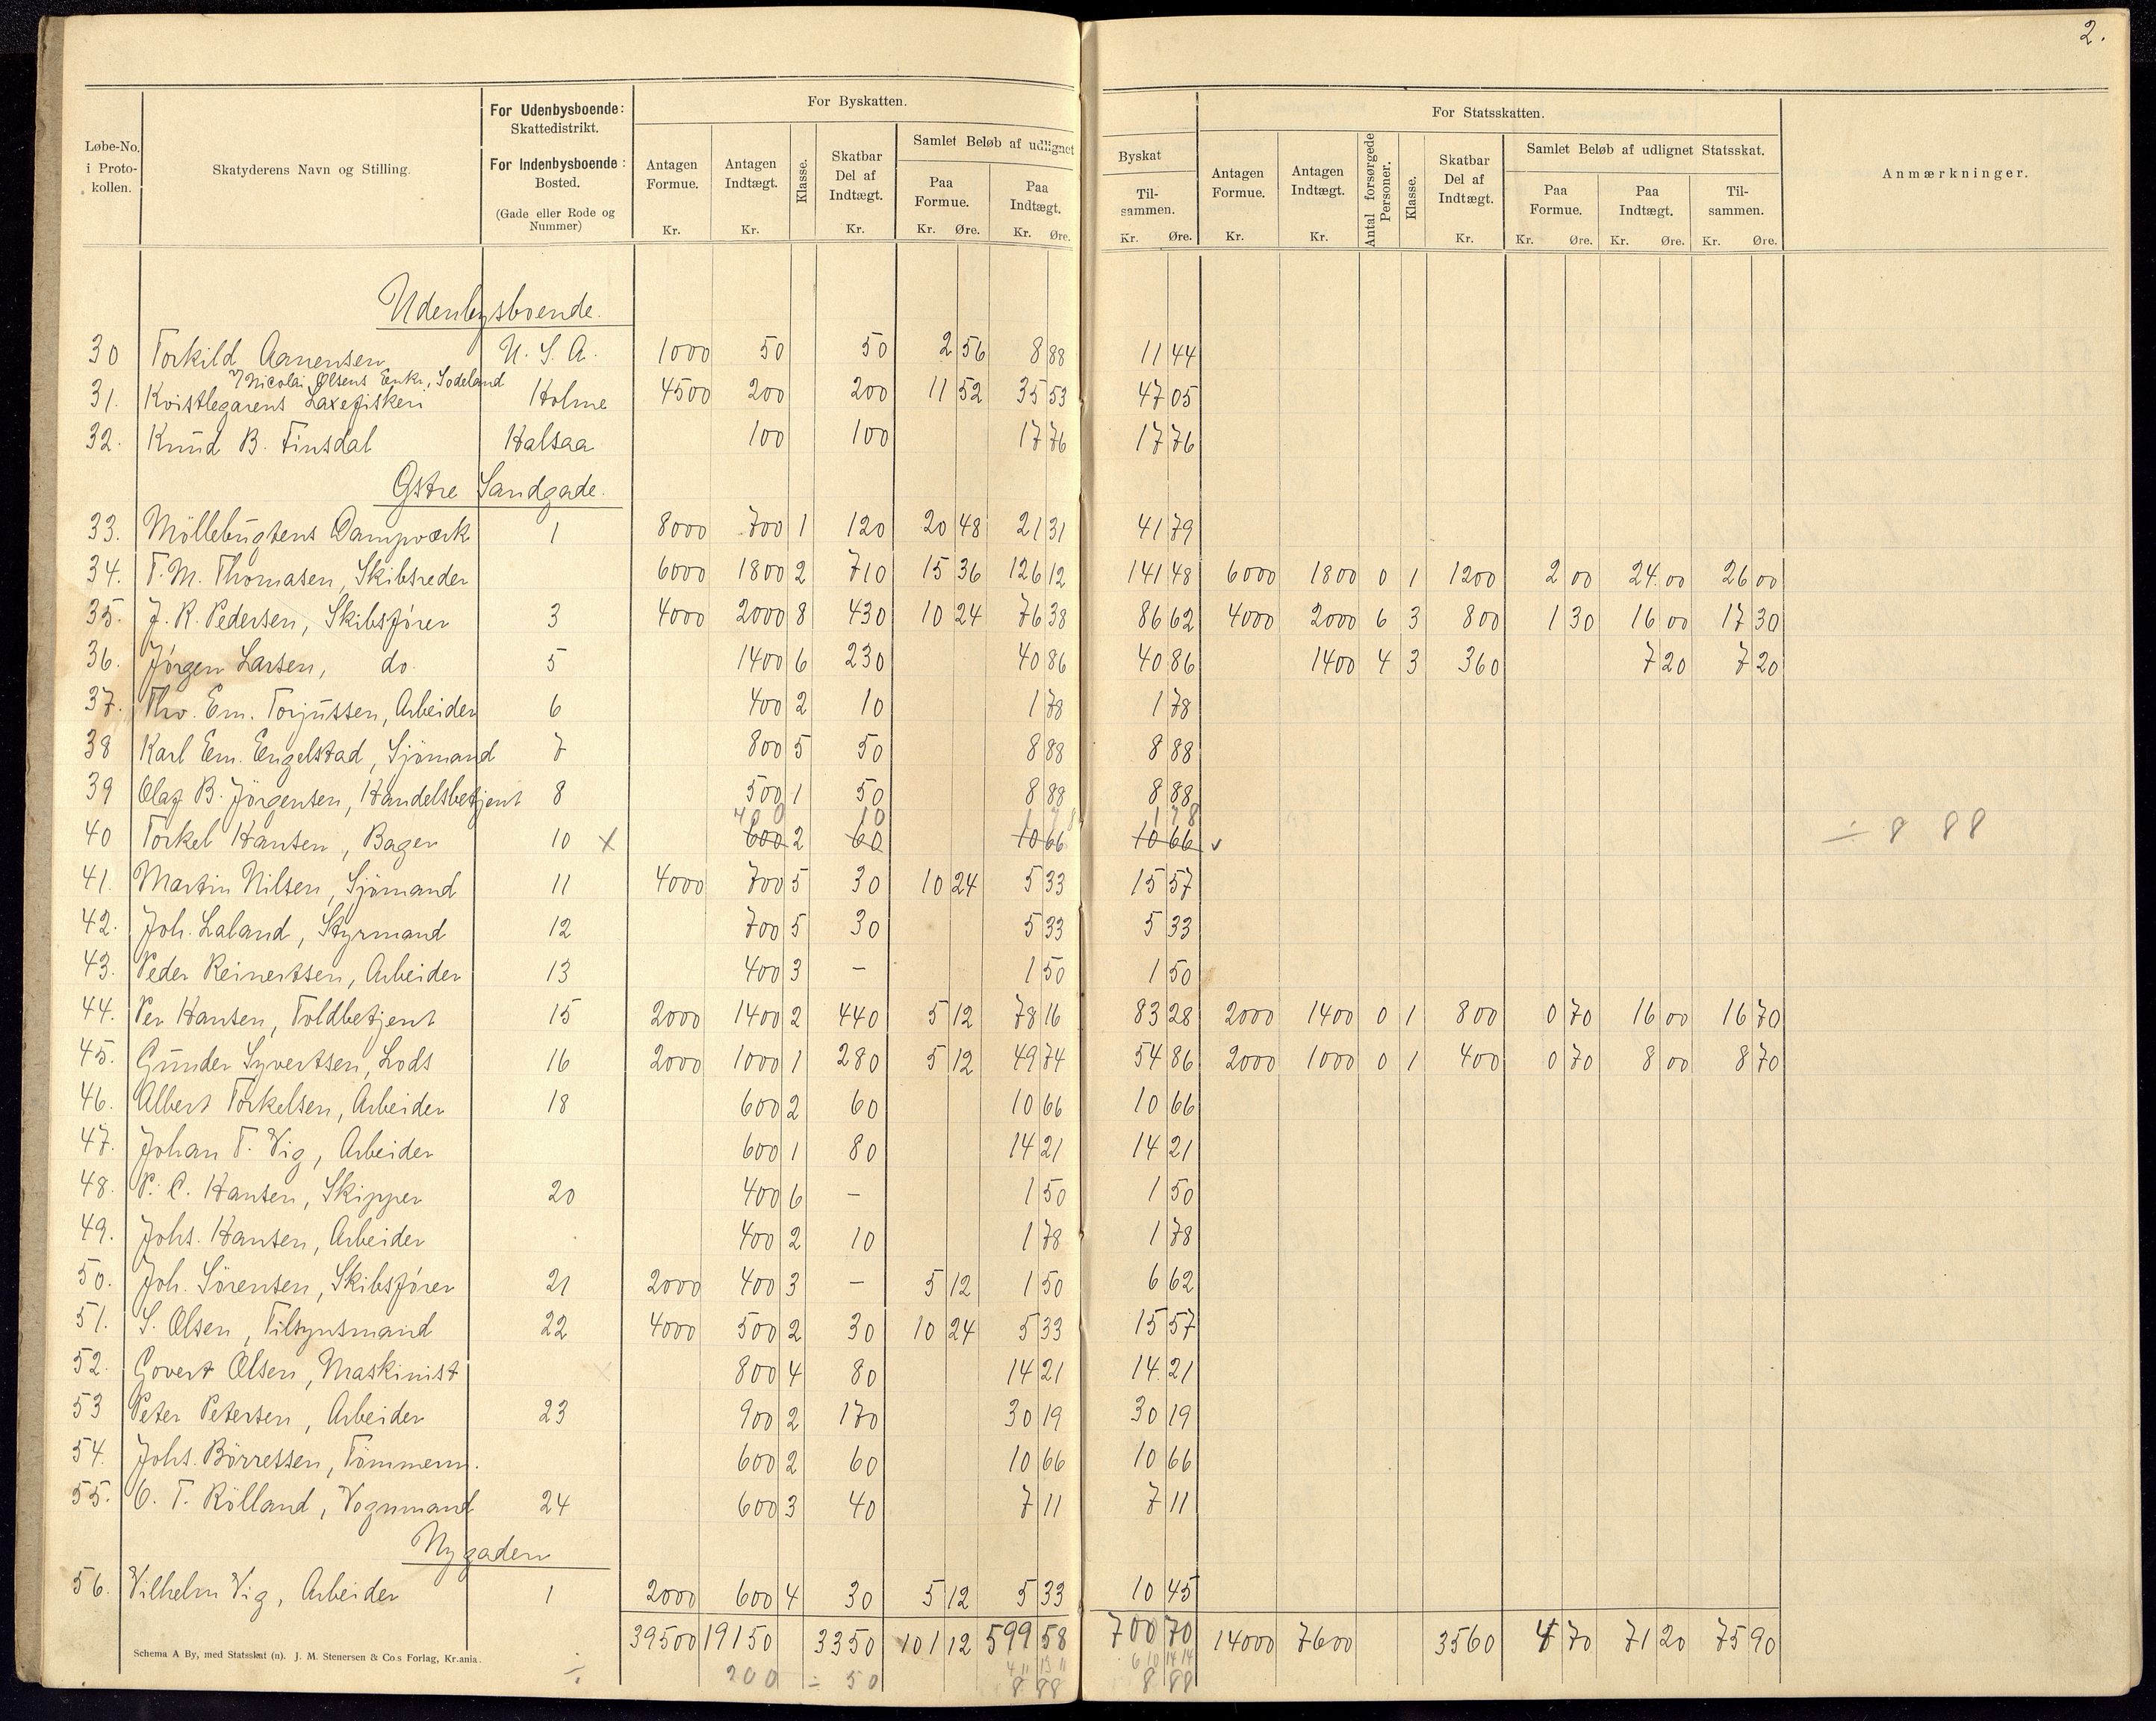 2.
Løbe-No. i Protokollen. | Skatyderens Navn og Stilling. | For Udenbysboende: Skattedistrikt. For Indenbysboende: Bosted. (Gade eller Rode og Nummer) | For Byskatten. | For Statsskatten. | Anmærkninger.
Antagen Formue. Kr. | Antagen Indtægt. Kr. | Klasse. | Skatbar Del af Indtægt. Kr. | Samlet Beløb af udlignet Byskat | Paa Formue. Kr. Øre. | Paa Indtægt. Kr. Øre. | Tilsammen. Kr. Øre. | Antagen Formue. Kr. | Antagen Indtægt. Kr. | Antal forsørgede Personer. | Klasse. | Skatbar Del af Indtægt. Kr. | Samlet Beløb af udlignet Statsskat. | Paa Formue. Kr. Øre. | Paa Indtægt. Kr. Øre. | Tilsammen. Kr. Øre.
Udenbysboende.
30 Torkild Aanensen U. S. A. 1000 50 50 2 56 8 88 11 44
v/ Nicolai Olsens Enke, Sodeland
31. Kvistlegarens Laxefiskeri Holme 4500 200 200 11 52 35 53 47 05
32. Knud B. Finsdal Halsaa 100 100 17 76 17 76
Østre Sandgade.
33. Möllebugtens Dampværk 1 8000 700 1 120 20 48 21 31 41 79
34. T. M. Thomasen, Skibsreder 6000 1800 2 710 15 36 126 12 141 48 6000 1800 0 1 1200 2 00 24 00 26 00
35. J. R. Pedersen, Skibsfører 3 4000 2000 8 430 10 24 76 38 86 62 4000 2000 6 3 800 1 30 16 00 17 30
36. Jörgen Larsen, do 5 1400 6 230 40 86 40 86 1400 4 3 360 7 20 7 20
37. Tho. Em. Torjussen, Arbeider 6 400 2 10 1 78 1 78
38 Karl Em. Engelstad, Sjömand 7 800 5 50 8 88 8 88
39 Olaf B. Jörgensen, Handelsbetjent 8 500 1 50 8 88 8 88
400 10 1 78 1 78
40 Torkel Hansen, Bager 10 x 600 2 60 10 66 10 66 v ÷ 8 88
41. Martin Nilsen, Sjömand 11 4000 700 5 30 10 24 5 33 15 57
42. Joh. Laland, Styrmand 12 700 5 30 5 33 5 33
43. Peder Reinertsen, Arbeider 13 400 3 – 1 50 1 50
44. Per Hansen, Toldbetjent 15 2000 1400 2 440 5 12 78 16 83 28 2000 1400 0 1 800 0 70 16 00 16 70
45. Gunder Syvertsen, Lods 16 2000 1000 1 280 5 12 49 74 54 86 2000 1000 0 1 400 0 70 8 00 8 70
46. Albert Torkelsen, Arbeider 18 600 2 60 10 66 10 66
47. Johan T. Vig, Arbeider 600 1 80 14 21 14 21
48. P. C. Hansen, Skipper 20 400 6 – 1 50 1 50
49. Johs. Hansen, Arbeider 400 2 10 1 78 1 78
50. Joh. Sörensen, Skibsfører 21 2000 400 3 – 5 12 1 50 6 62
51. S. Olsen, Tilsynsmand 22 4000 500 2 30 10 24 5 33 15 57
52. Govert Olsen, Maskinist x 800 4 80 14 21 14 21
53 Peter Petersen, Arbeider 23 900 2 170 30 19 30 19
54. Johs. Börressen, Tömmerm. 600 2 60 10 66 10 66
55. O. T. Rölland, Vognmand 24 600 3 40 7 11 7 11
Nygaden
56. Vilhelm Vig, Arbeider 1 2000 600 4 30 5 12 5 33 10 45
39500 19150 3350 101 12 599 58 700 70 14000 7600 3560 4 70 71 20 75 90
Schema A By, med Statsskat (n). J. M. Stenersen & Co.s Forlag, Kr.ania.
÷ 200 ÷ 50 8 88 8 88